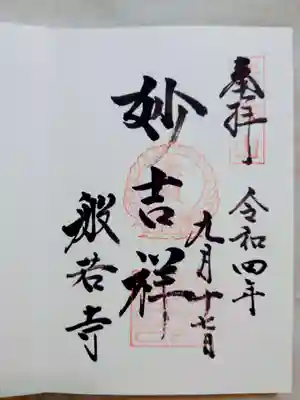 奉拝
令和四年
九月十七日
妙吉祥
般若寺